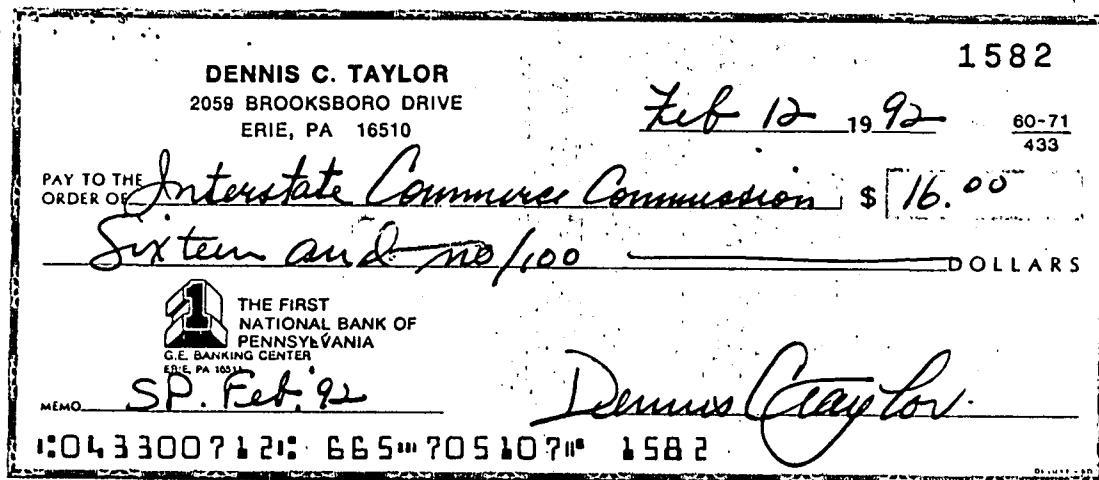 1582
DENNIS C. TAYLOR
2059 BROOKSBORO DRIVE
ERIE, PA 16510
Feb 12 1992
60-71
433
PAY TO THE ORDER OF Interstate Commerce Commission $ 16.00
Sixteen and no/100 DOLLARS
1 THE FIRST
NATIONAL BANK OF
PENNSYLVANIA
G.E. BANKING CENTER
ERIE, PA
MEMO SP. Feb. '92 Dennis C Taylor
⑆043300712⑆ 665⑉705107⑈ 1582